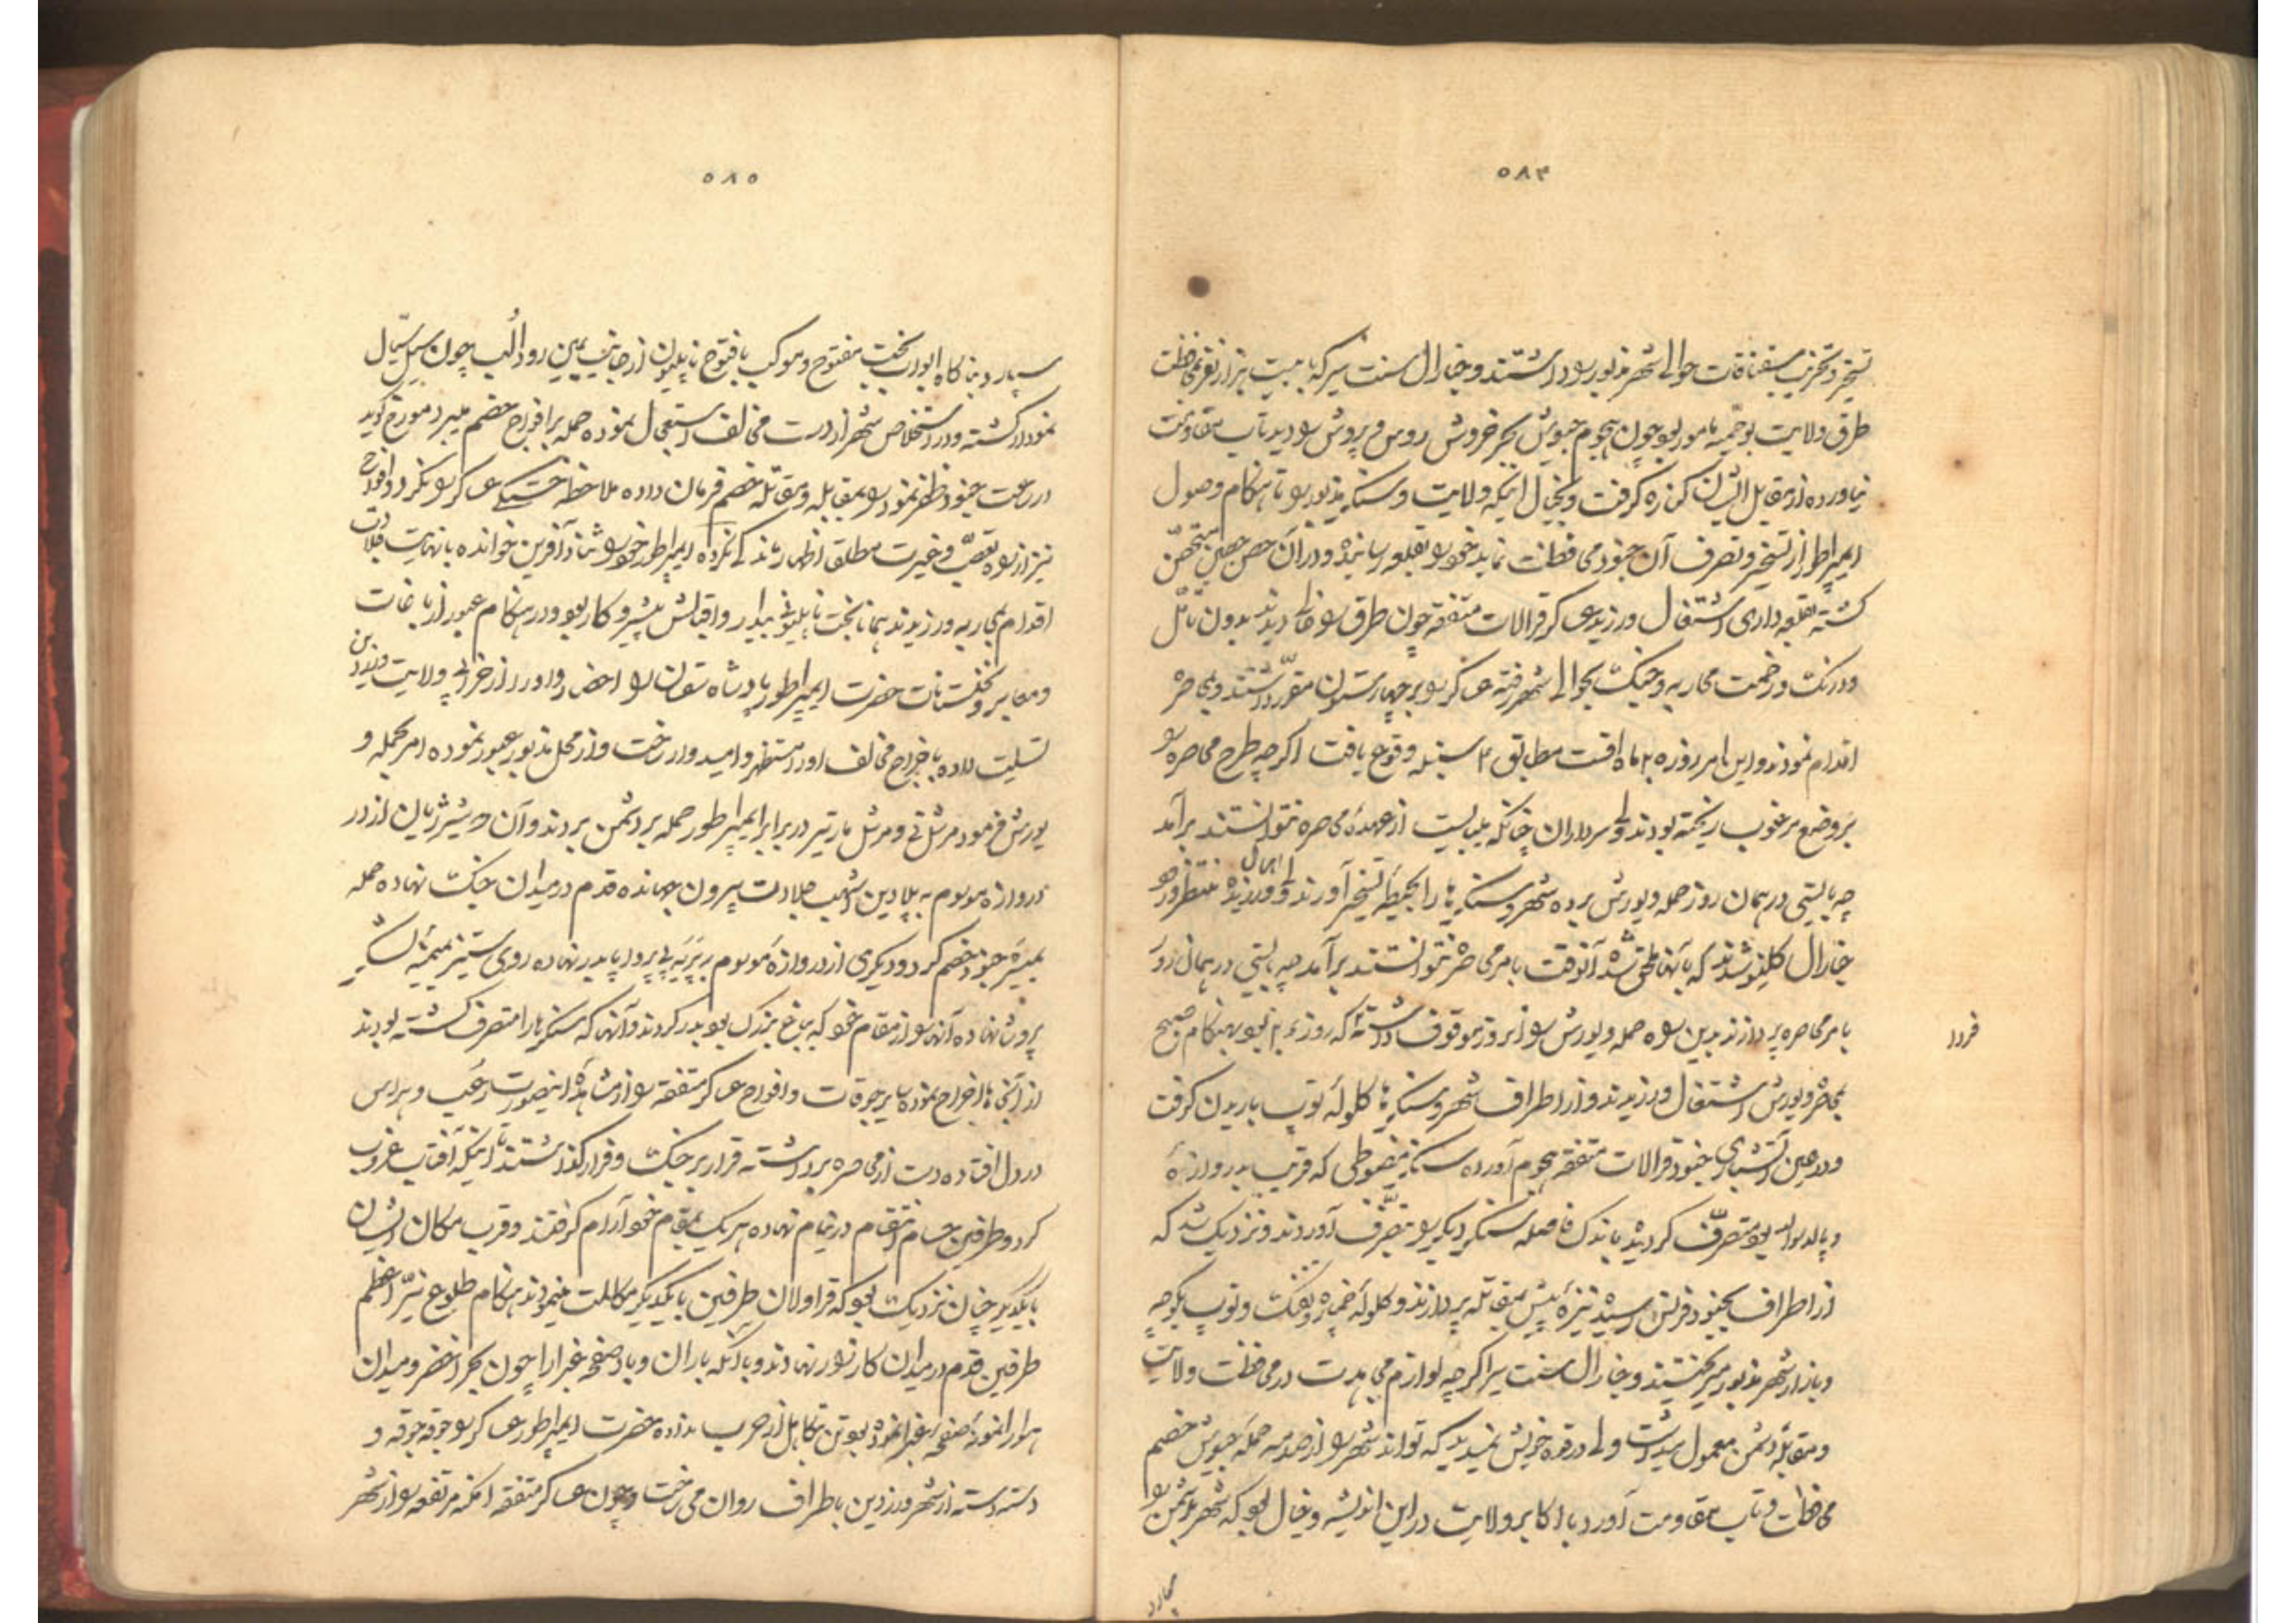 ۵۸۴
تسخیر و تخریب سقناقات حوالی شهر مذبور بود داشتند و جنارال سنت سیر که با بیست هزار نفر بمحافظت
طرق ولایت بوحمیه مامور بود چون هجوم جیوش بحر خروش روس و پروش بودید تاب مقاومت
نیاورده از مقابل ایشان کناره گرفت و بخیال اینکه ولایت و سنکر مذبور بو تا هنکام وصول
ایمپراطور از تسخیر و تصرف آن جنود محافظت نماید خود بو بقلعه رسانیده و در آن حصن حصین متحصّن
کشته بقلعه داری اشتغال ورزید عساکر قرالات متفقه چون طرق بو خالی دیدند بدون تامّل
و درنک و زخمت محاربه و جنک بحوالی شهر رفته عساکر بو بر چهار ستون مقرّر داشتند و بمحاصره
اقدام نمودند و این امر روز ۲۶ ماه اقست مطابق ۴ سنبله وقوع یافت اکرچه طرح محاصره بو
بر وضع مرغوب ریخته بودند ولی سرداران چنانکه میبایست از عهدهٔ محاصره نتوانستند برآمد
چه بایستی در همان روز حمله و یورش برده شهر و سنکرها را بحیطهٔ تسخیر آورند اهمال ورزیده منتظر ورود
جنارال کلینو شدند که بآنها ملحق شده آنوقت بامر محاصره نتوانستند برآمد چه بایستی در همان روز
بامر محاصره پردازند بدین بوه حمله و یورش بو از بروز موقوف داشته که روز ۲۶ بود بهنکام صبح
فردا
بمحاصره و یورش اشتغال ورزیدند و از اطراف شهر و سنکرها کلولهٔ توپ باریدن کرفت
و در عین آتشباری جنود قرالات متفقه هجوم آورده سنکر مضبوطی که قریب بدروازهٔ
بود متصرّف کردیده باندک فاصله سنکر دیکر بو بتصّرف آوردند و نزدیک شد که
از اطراف بجنود فرانسه رسیده نیزه پیش بمقاتله پردازند و کلولهٔ خمپاره و تفنک و توپ بکوچه
و بازار شهر مذبور میریختند و جنارال سنت سیر اکرچه لوازم مجاهدت در محافظت ولایت
و مقابلهٔ دشمن معمول میداشت ولی در قوهٔ خویش نمیدید که تواند شهر بو از صدمه حملهٔ جیوش خصم
محافظت و تاب مقاومت آورد با اکابر ولایت در این اندیشه و خیال بود که شهر بدشمن بو
سپارد
۵۸۵
سپارد بناکاه ابواب بخت مفتوح و موکب بافتوح ناپلیون از جانب یمین رود الب چون سیل سیّال
نمودار کشته و در استخلاص شهر از دست مخالف استعجال نموده حمله بر افواج خصم میبرد مورخ کوید
در ساعت جنود ظفر نمود بو بمقابله و مقاتلهٔ خصم فرمان داده ملاحظه خستکی عساکر بو نکرد و افواج
نیز از بوه تعصّب و غیرت مطلق اظهار ماندکی نکرده ایمپراطور خود بو ثنا و آفرین خوانده با نهایت جلادت
اقدام بمحاربه ورزیدند همانا بخت ناپلیونی بیدار و اقبالش پیشرو کار بود و در هنکام عبور از باغات
و معابر و نخلستانات حضرت ایمپراطور پادشاه سقسان بو احضار و او را از خرابی ولایت دریدین
تسلیت داده باخراج مخالف او را مستظهر و امیدوار ساخت و از محل مذبور عبور نموده امر بحمله و
یورش فرمود مرشل نی و مرشل مارتیر در برابر ایمپراطور حمله بر دشمن بردند و آن دو شیر ژیان از در
دروازه موسوم به پلادین اشهب جلادت بیرون جهانده قدم در میدان جنک نهاده حمله
بمیسرهٔ جنود خصم کرد و دیکری از دروازهٔ موسوم به پرنه بی پروا پا بدر نهاده روی ستیز بمیمنهٔ لشکر
پروش نهاده آنها بو از مقام خود که بباغ بزرک بود بدر کردند و آنها که سنکرها را متصرف کشته بودند
از آنجاها اخراج نموده سایر جوقات و افواج عساکر متفقه بو از مشاهدهٔ اینصورت رعب و هراس
در دل افتاده دست از محاصره برداشته قرار بر جنک و فرار کذاشتند تا اینکه آفتاب غروب
کرد و طرفین حسام انتقام در نیام نهاده هر یک بمقام خود آرام کرفتند و قرب مکان ایشان
بایکدیکر چنان نزدیک بود که قراولان طرفین بایکدیکر مکالمت مینمودند هنکام طلوع نیّر اعظم
طرفین قدم در میدان کارزار نهادند و باآنکه باران و باد صفحه غبرا را چون بحر اخضر و میدان
هوا را نمونهٔ صفحهٔ غبرا نموده بود تن بتکاهل از حرب نداده حضرت ایمپراطور عساکر بو جوقه جوقه و
دسته دسته از شهر درزدین باطراف روان می ساخت و چون عساکر متفقه امکنه مرتفعه بو از شهر